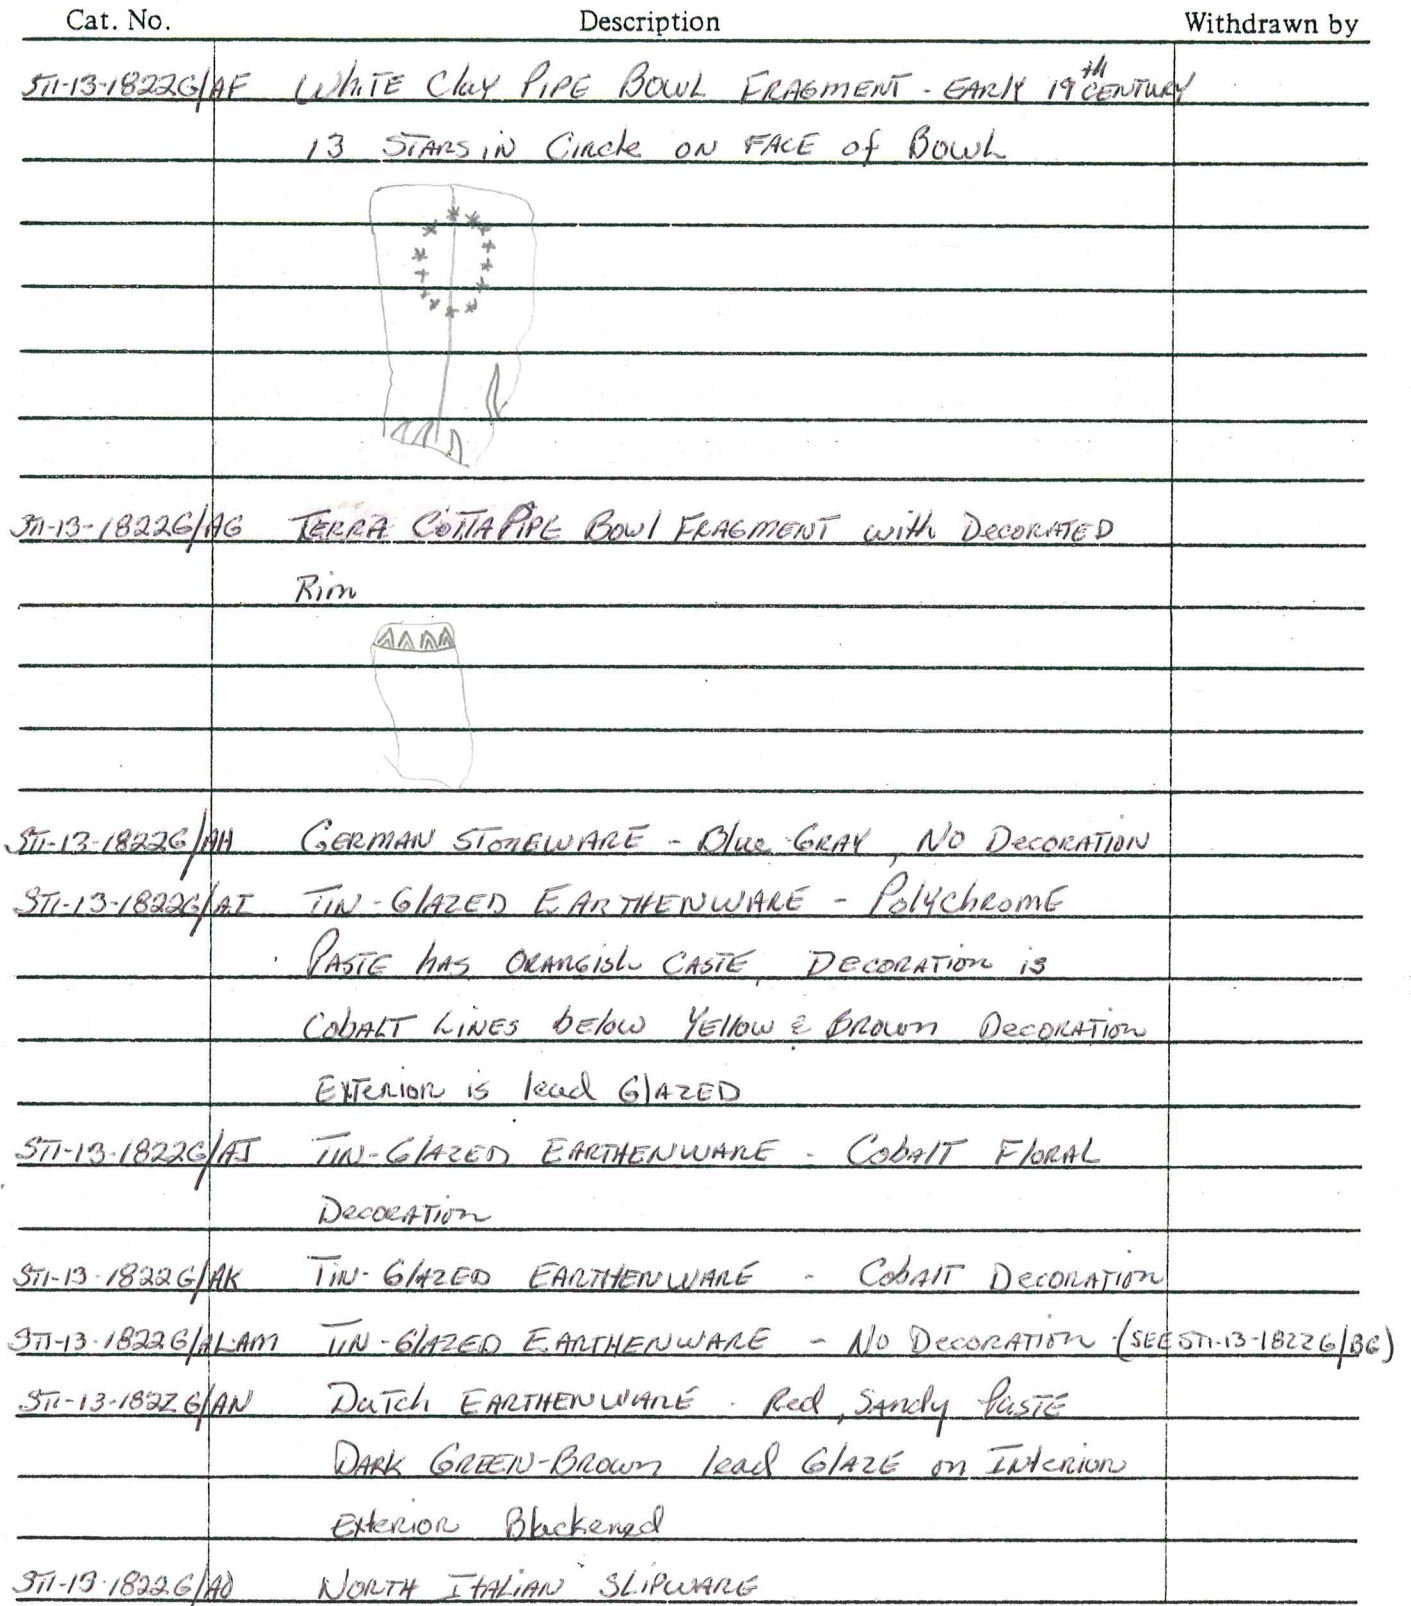 Cat. No. Description Withdrawn by
STI-13-1822G/AF White Clay Pipe Bowl Fragment - Early 19th Century
13 Stars in Circle on Face of Bowl
STI-13-1822G/AG Terra Cotta Pipe Bowl Fragment with Decorated
Rim
STI-13-1822G/AH German Stoneware - Blue-Gray, No Decoration
STI-13-1822G/AI Tin-Glazed Earthenware - Polychrome
Paste has orangish caste, Decoration is
Cobalt lines below Yellow & Brown Decoration
Exterior is lead Glazed
STI-13-1822G/AJ Tin-Glazed Earthenware - Cobalt Floral
Decoration
STI-13-1822G/AK Tin-Glazed Earthenware - Cobalt Decoration
STI-13-1822G/AL-AM Tin-Glazed Earthenware - No Decoration - (See STI-13-1822G/BG)
STI-13-1822G/AN Dutch Earthenware - Red, Sandy Paste
Dark Green-Brown lead Glaze on Interior
Exterior Blackened
STI-13-1822G/AO North Italian Slipware